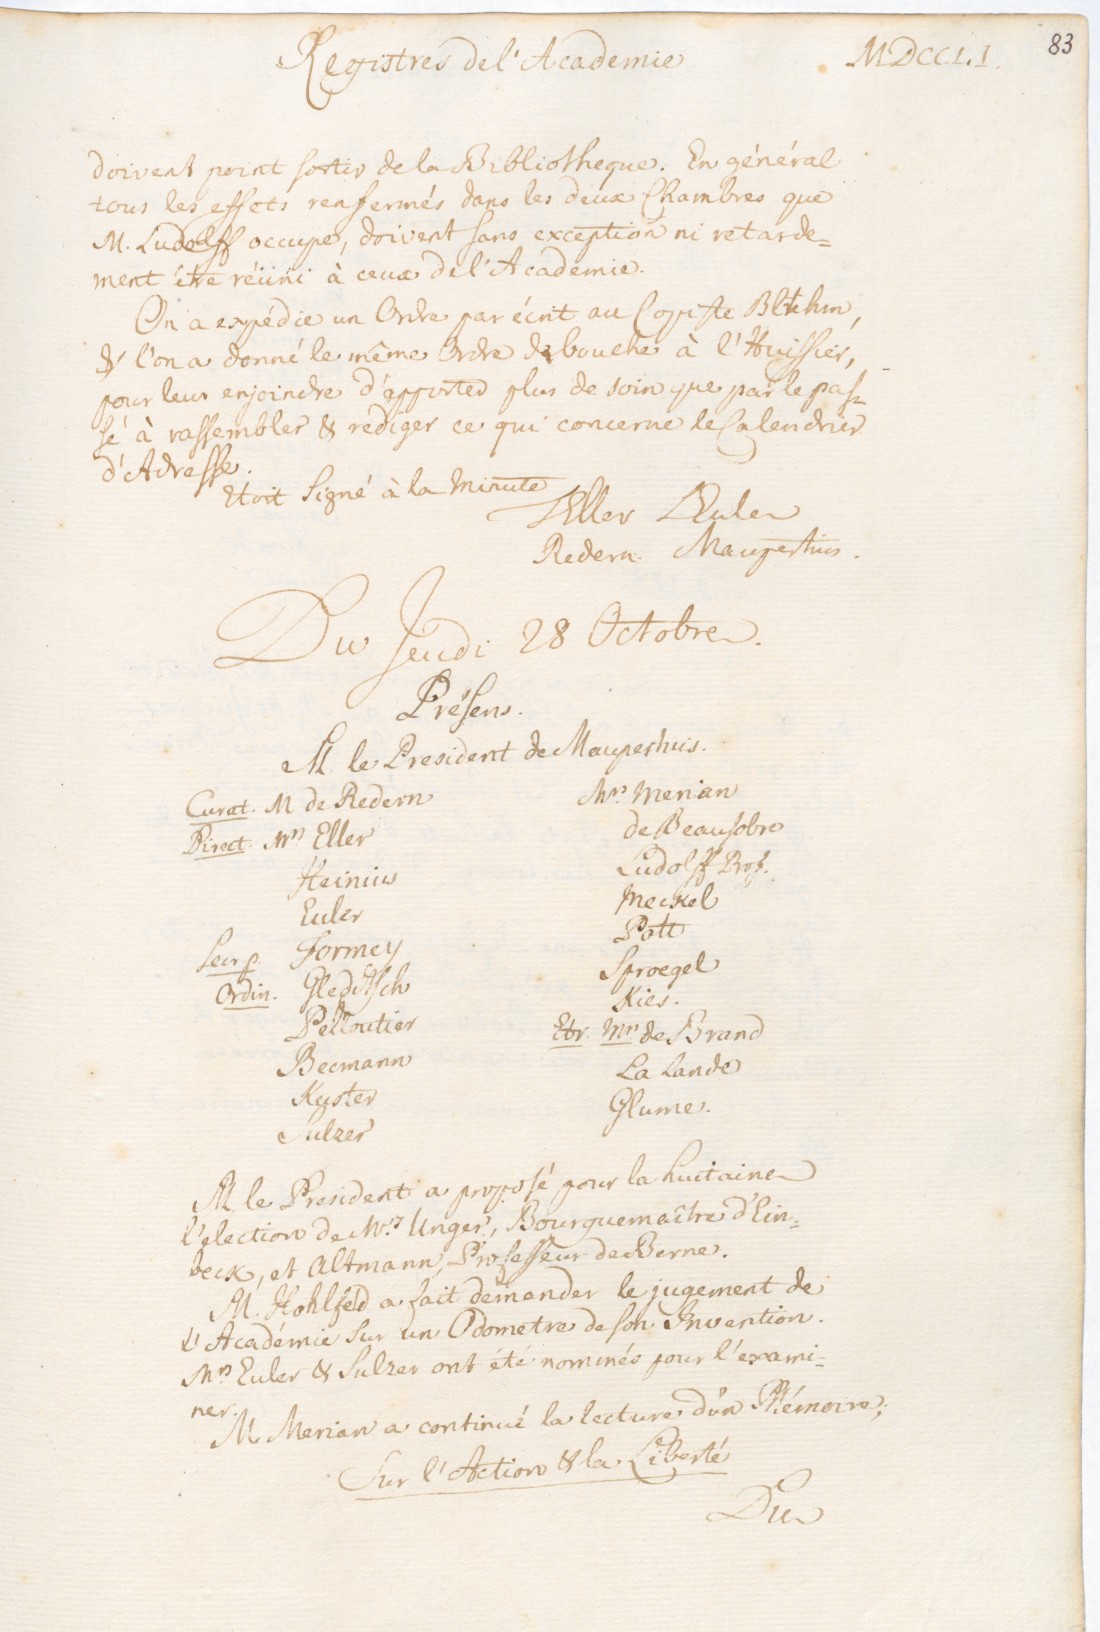 83
Registres de l'Academie MDCCLI
doivent point sortir de la Bibliotheque. En général
tous les effets renfermés dans les deux Chambres que
M. Ludolff occupe, doivent sans exception ni retarde=
ment être réüni à ceux de l'Academie.
On a expédie un Ordre par écrit au Copiste
& l'on a donné le même Ordre de bouche à l'Huissier,
pour leur enjoindre d'apporter plus de soin que par le pas=
sé à rassembler & rediger ce qui concerne le Calendrier
d'Adresse.
Etoit signé à la minute
Eller LEuler
Redern. Maupertuis.
Du Jeudi 28 Octobre.
Présens.
M. le President de Maupertuis.
Curat. M de Redern
Direct. Mrs Eller
Heinius
Euler
Secr. Formey
Ordin. Gleditsch
Pelloutier
Becmann
Kyster
Sulzer
Mrs Merian
de Beausobre
Ludolff Prof.
Meckel
Pott
Sproegel
Kies.
Etr. Mrs de Brand
La Lande
Glume.
M le President a proposé pour la huitaine
l'election de Mrs Unger, Bourguemaître d'Ein=
beck, et Altmann, Professeur de Berne.
M. Hohlfeld a fait demander le jugement de
l'Académie sur un Odometre de son Invention.
Mrs Euler & Sulzer ont été nommés pour l'exami=
ner.
M Merian a continué la lecture d'un Mémoire,
Sur l'Action & la Liberté
Du